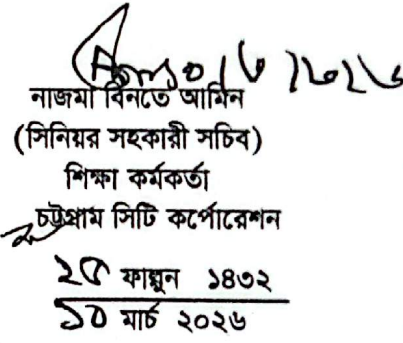 নাজমা বিনতে আমিন
(সিনিয়র সহকারী সচিব)
শিক্ষা কর্মকর্তা
চট্টগ্রাম সিটি কর্পোরেশন
২৫ ফাল্গুন ১৪৩২
১০ মার্চ ২০২৬